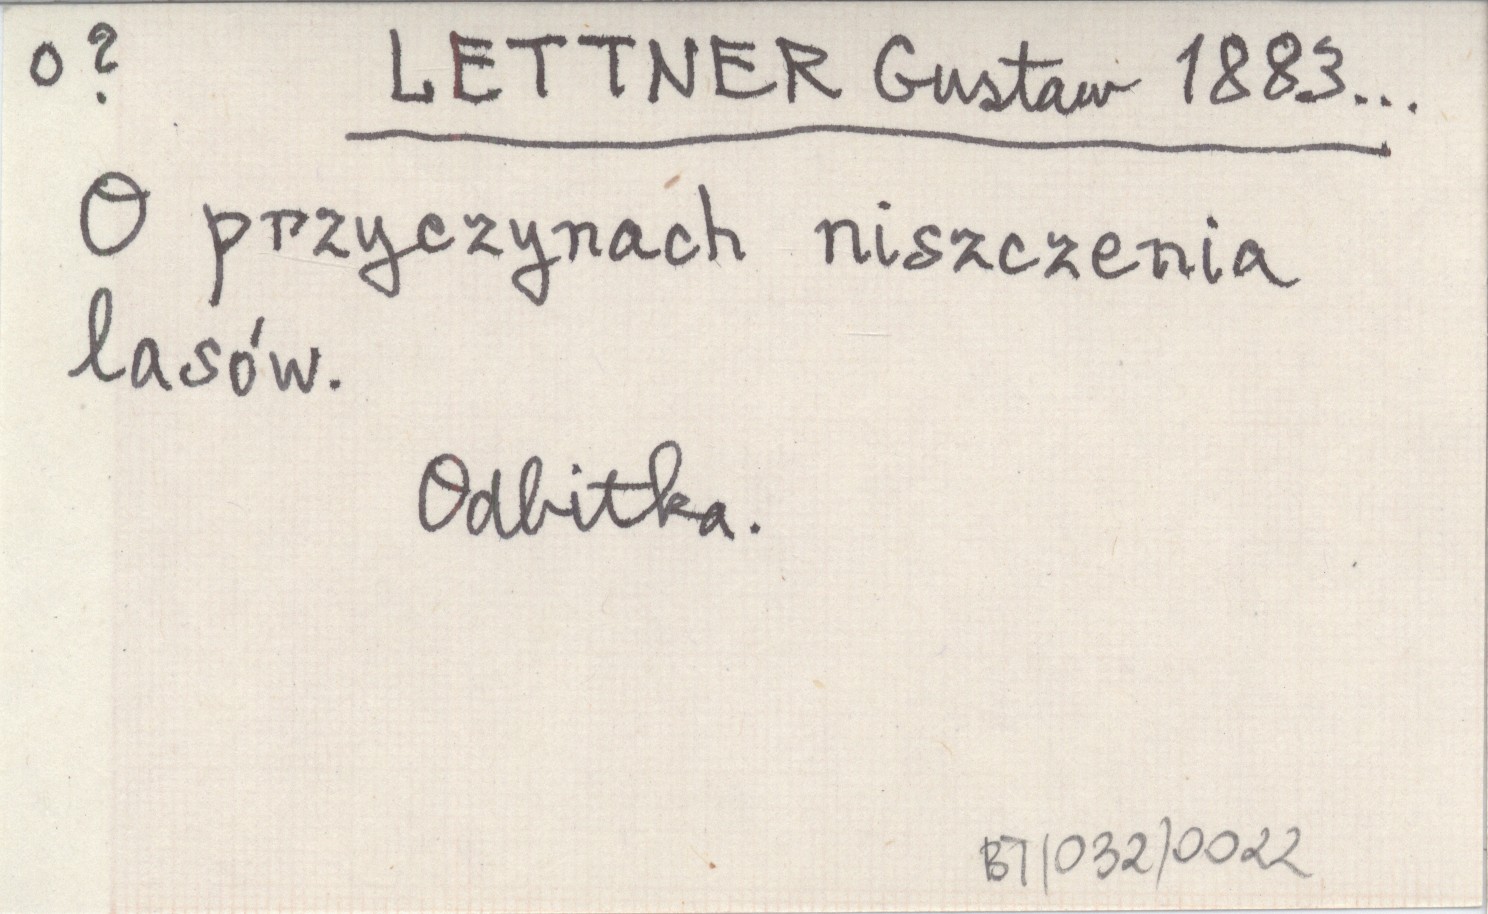 o? LETTNER Gustaw 1883...
O przyczynach niszczenia
lasów.
Odbitka.
BT/032/0022